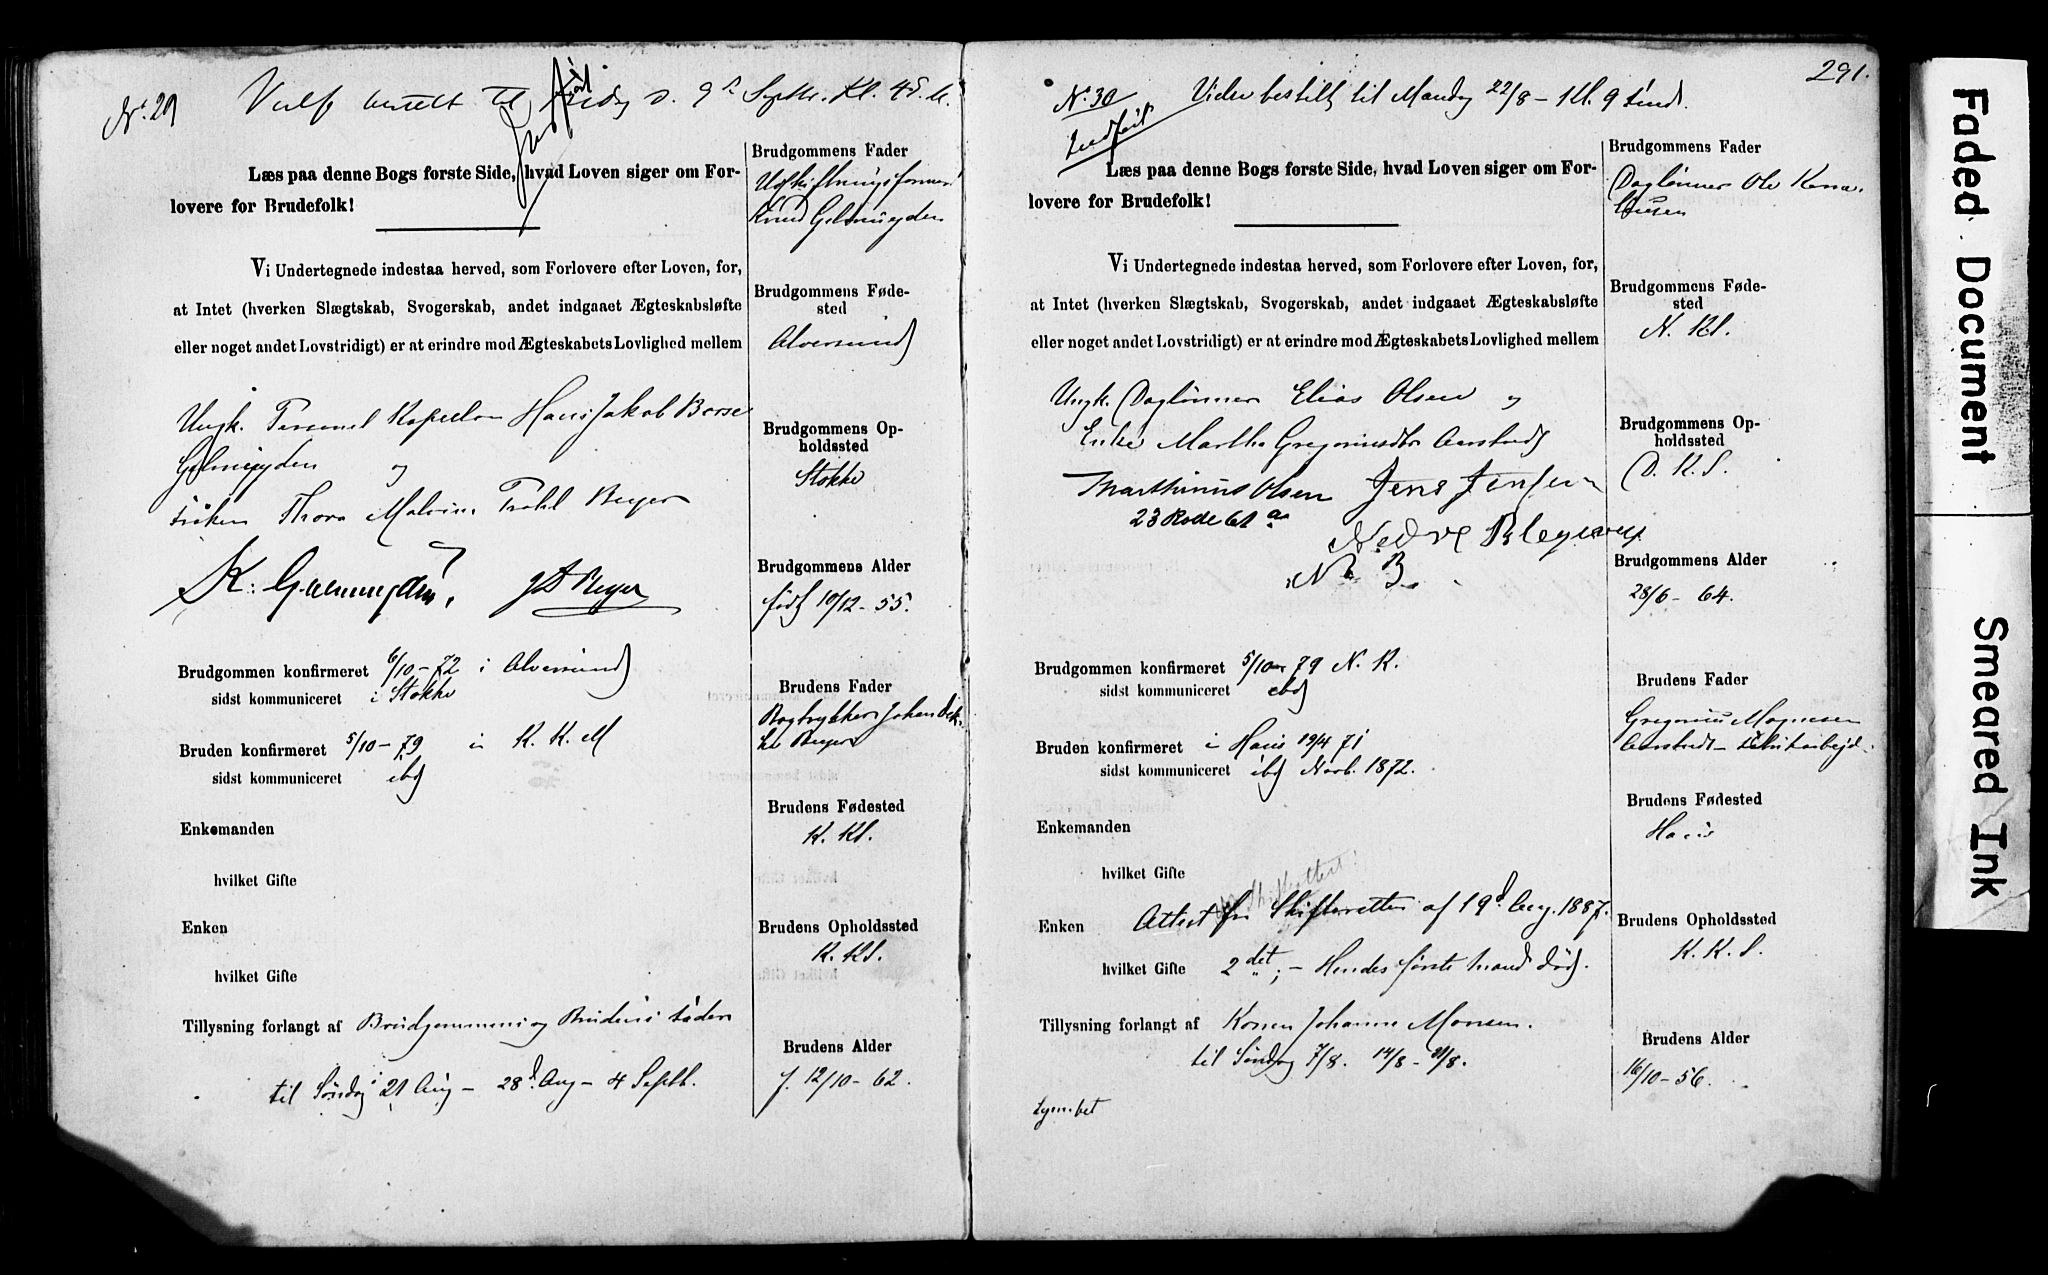 Nr. 29
bestilt til Fredag d. 9d Septbr. Kl. 4
Læs paa denne Bogs første Side, hvad Loven siger om For-
lovere for Brudefolk!
Vi Undertegnede indestaa herved, som Forlovere efter Loven, for,
at Intet (hverken Slægtskab, Svogerskab, andet indgaaet Ægteskabsløfte
eller noget andet Lovstridigt) er at erindre mod Ægteskabets Lovlighed mellem
Ungk. Personel Kapellan Hans Jakob Borse
Gjelmuyden og
Frøken Thora Malvine Beyer
K. Gjelmuyden, Beyer
Brudgommen konfirmeret 6/10 - 72 i Alversund
sidst kommuniceret i Stokke
Bruden konfirmeret 5/10 - 79 i K. K. M
sidst kommuniceret ibd
Enkemanden
hvilket Gifte
Enken
hvilket Gifte
Tillysning forlangt af Brudgommens og Brudens Fader
til Søndag 21 Aug - 28d. Aug - 4 Septb.
Brudgommens Fader
Udskiftningsformand
Knud Gjelmuyden
Brudgommens Føde-
sted
Alversund
Brudgommens Op-
holdssted
Stokke
Brudgommens Alder
født 10/12 - 55.
Brudens Fader
Bogtrykker Johan
Beyer
Brudens Fødested
K. Kl.
Brudens Opholdssted
K. Kl.
Brudens Alder
f. 12/10 - 62.
291.
N. 30 Vielse bestilt til Mandag 22/8 - Kl. 9
Indført
Læs paa denne Bogs første Side, hvad Loven siger om For-
lovere for Brudefolk!
Vi Undertegnede indestaa herved, som Forlovere efter Loven, for,
at Intet (hverken Slægtskab, Svogerskab, andet indgaaet Ægteskabsløfte
eller noget andet Lovstridigt) er at erindre mod Ægteskabets Lovlighed mellem
Ungk. Daglønner Elias Olsen og
Enke Martha Gregoriusdtr Aarstad
Marthinus Olsen Jens Jensen
23 Rode 61 a Nedre Blegevej
N B.
Brudgommen konfirmeret 5/10 79 N. K.
sidst kommuniceret ibd
Bruden konfirmeret i Haus 19/4 71
sidst kommuniceret ibd Novb. 1872.
Enkemanden
hvilket Gifte
Enken Attest fra Skifteretten af 19d Aug. 1887.
hvilket Gifte 2det; - Hendes første Mand død.
Tillysning forlangt af Konen Johanne Monsen.
til Søndag 7/8. 14/8 - 21/8.
Brudgommens Fader
Daglønner Ole
Brudgommens Føde-
sted
N. Kl.
Brudgommens Op-
holdssted
D. K. S.
Brudgommens Alder
28/6 - 64.
Brudens Fader
Gregorius Magnesen
Aarstad -
Brudens Fødested
Haus
Brudens Opholdssted
K. K. S.
Brudens Alder
16/10 - 56.
Faded Document
Smeared Ink